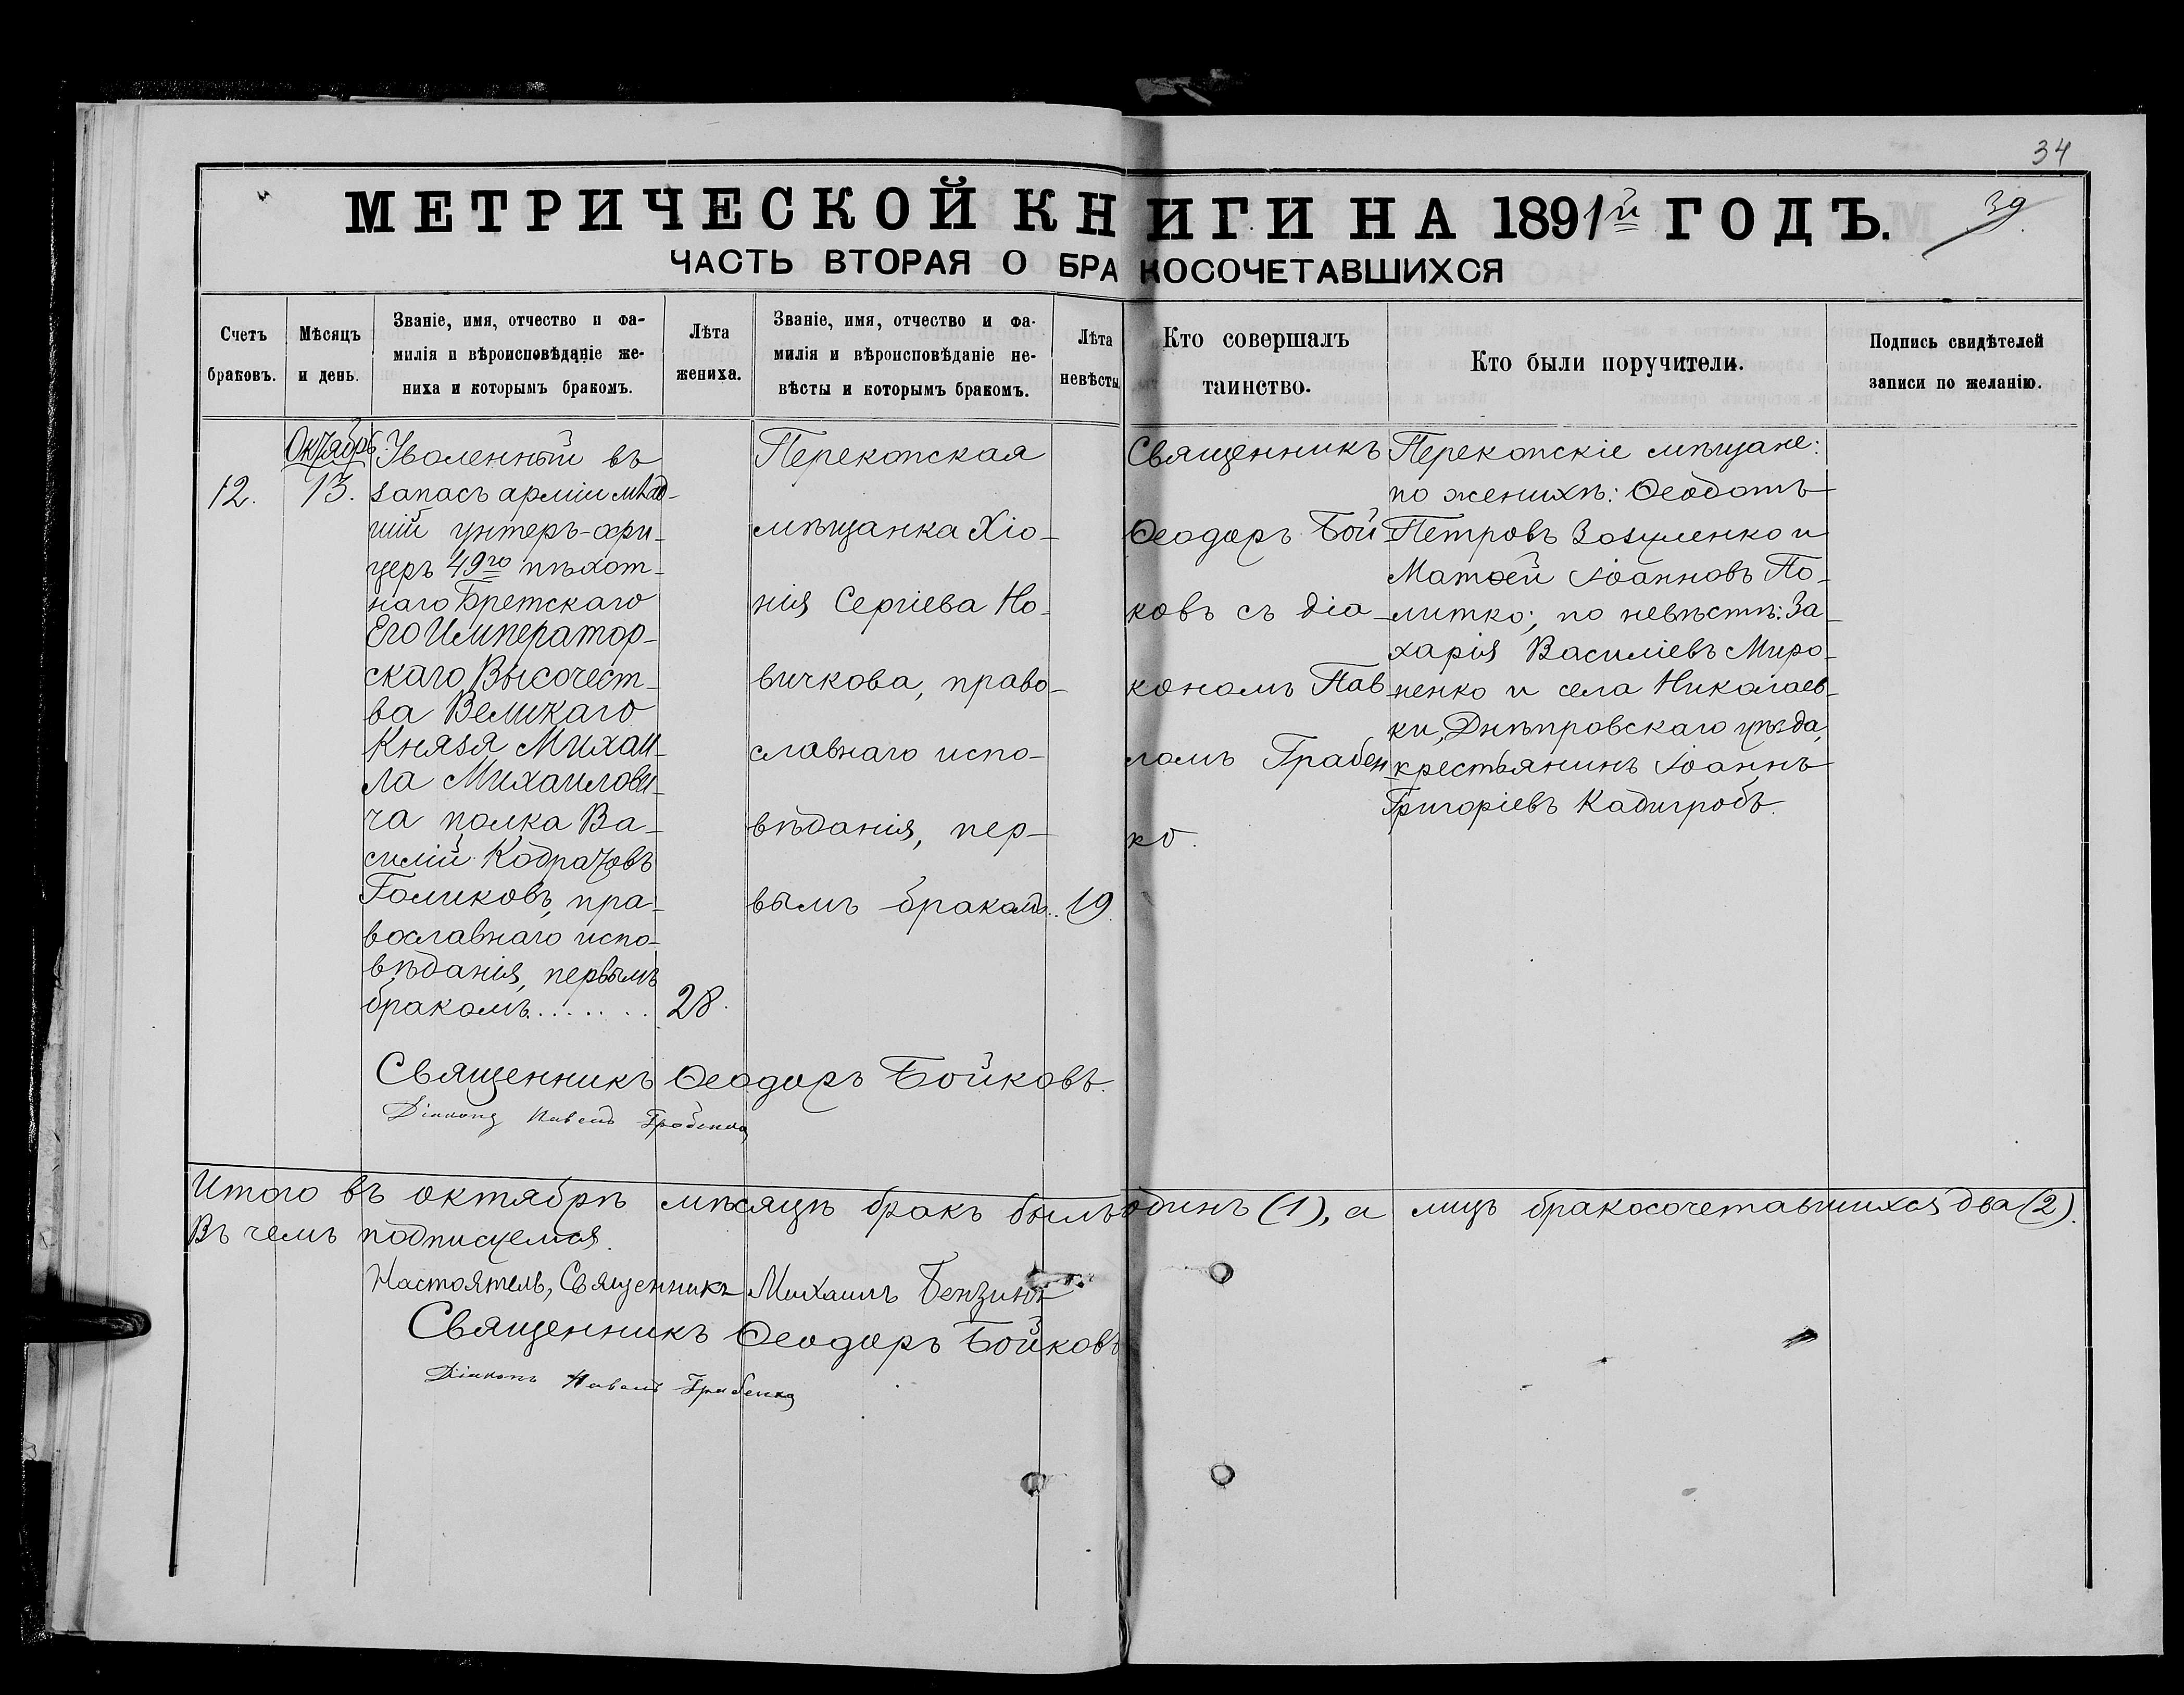 34
МЕТРИЧЕСКОЙ КНИГИ НА 1891й ГОДЪ.
39
ЧАСТЬ ВТОРАЯ О БРАКОСОЧЕТАВШИХСЯ
Счетъ
браковъ.
Мѣсяцъ
и день.
Званіе, имя, отчество и фа-
милія и вѣроисповѣданіе же-
ниха и которымъ бракомъ.
Лѣта
жениха.
Званіе, имя, отчество и фа-
милія и вѣроисповѣданіе не-
вѣсты и которымъ бракомъ.
Лѣта
невѣсты.
Кто совершалъ
таинство.
Кто были поручители.
Подпись свидѣтелей
записи по желанію.
12.
Октябрь
13.
Уволенный въ
запасъ арміи млад-
шій унтеръ-офи-
церъ 49го пѣхот-
наго Бретскаго
Его Император-
скаго Высочест-
ва Великаго
Князя Михаи-
ла Михаилови-
ча полка Ва-
силій Кодратовъ
Голиковъ, пра-
вославнаго испо-
вѣданія, первымъ
бракомъ.......
28.
Перекопская
мѣщанка Хіо-
нія Сергіева Но-
вичкова, право-
славнаго испо-
вѣданія, пер-
вымъ бракомъ..
19.
Священникъ
Ѳеодоръ Бой-
ковъ съ діа-
кономъ Пав-
ломъ Грабен-
ко.
Перекопскіе мѣщане:
по женихѣ: Ѳеодотъ
Петровъ Зозуленко и
Матѳей Іоанновъ По-
литко; по невѣстѣ: За-
харія Василіевъ Миро-
ненко и села Николаев-
ки, Днѣпровскаго уѣзда,
крестьянинъ Іоаннъ
Григоріевъ Кадигробъ.
Священникъ Ѳеодоръ Бойковъ.
Діаконъ Павелъ Грабенко
Итого въ октябрѣ мѣсяцѣ бракъ былъ одинъ (1), а лицъ бракосочетавшихся два (2).
Въ чемъ подписуемся.
Настоятель, Священникъ Михаилъ Бензинъ
Священникъ Ѳеодоръ Бойковъ
Діаконъ Павелъ Грабенко